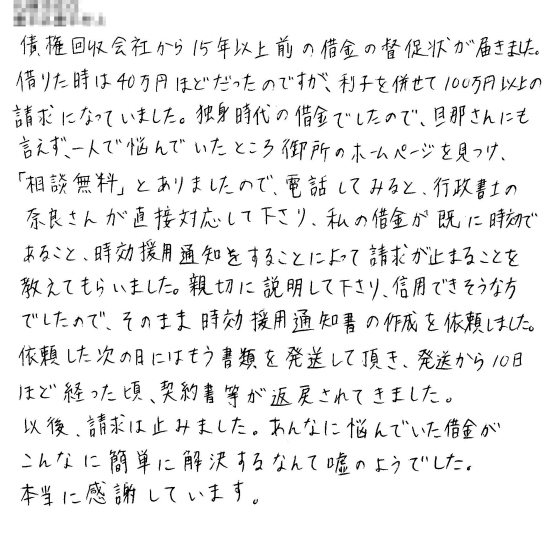 債権回収会社から15年以上前の借金の督促状が届きました。
借りた時は40万円ほどだったのですが、利子を併せて100万円以上の
請求になっていました。独身時代の借金でしたので、旦那さんにも
言えず、一人で悩んでいたところ御所のホームページを見つけ、
「相談無料」とありましたので、電話してみると、行政書士の
奈良さんが直接対応して下さり、私の借金が既に時効で
あること、時効援用通知をすることによって請求が止まることを
教えてもらいました。親切に説明して下さり、信用できそうな方
でしたので、そのまま時効援用通知書の作成を依頼しました。
依頼した次の日にはもう書類を発送して頂き、発送から10日
ほど経った頃、契約書等が返戻されてきました。
以後、請求は止みました。あんなに悩んでいた借金が
こんなに簡単に解決するなんて嘘のようでした。
本当に感謝しています。